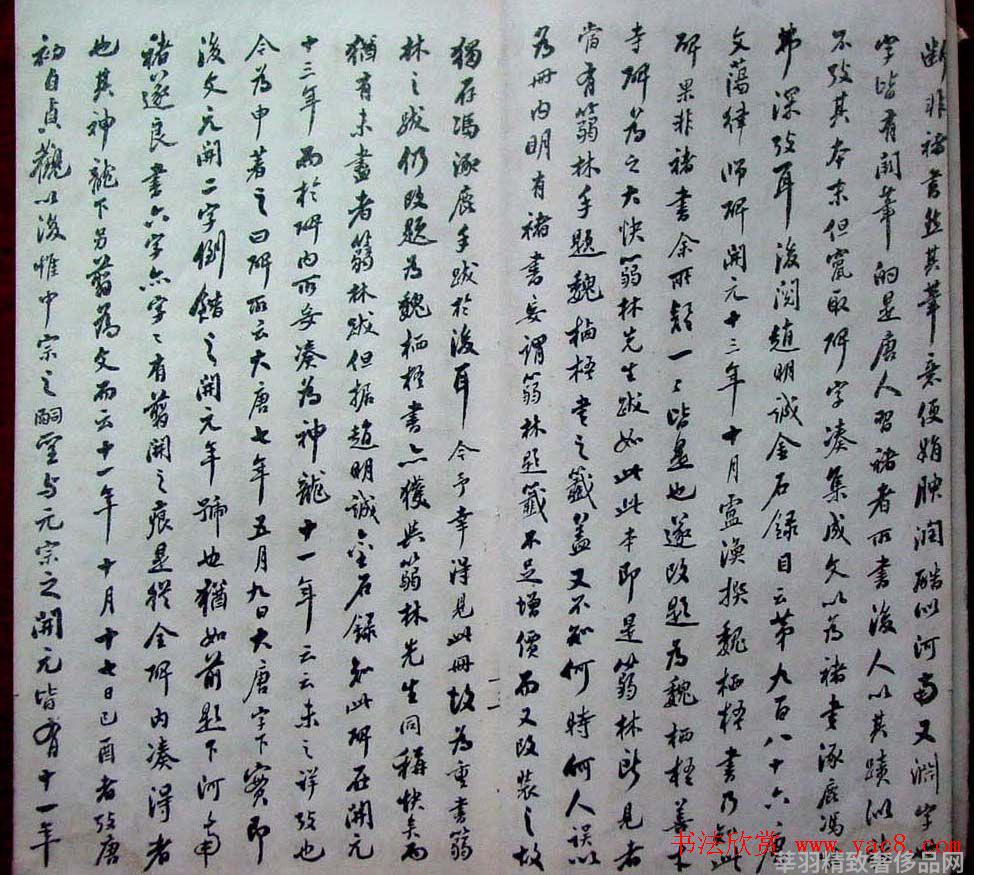 断非褚书然其笔意便娟腴润酷似河南又渊字
字皆有阙笔的是唐人习褚者所书后人以其蹟似
不攷其本末但冣取碑字凑集成文以为褚书涿鹿冯
弗深攷耳後阅趙明诚金石録目云第九百八十六唐
文蕩律师碑开元十三年十月盧渙撰魏栖梧书乃知此
碑果非褚书余所疑一々皆是也遂改題为魏栖梧善才
寺碑为之大快蒻林先生跋如此此本即是蒻林所見者
当有蒻林手題魏栖梧书之籤盖又不知何時何人误以
为冊内明有褚书妄谓蒻林題籤不足增價而又改装之故
獨存馮涿鹿手跋於後耳今予幸得見此冊故为重书蒻
林之跋仍改題为魏栖梧书亦獲與蒻林先生同稱快矣而
猶有未盡者蒻林跋但据趙明诚金石録知此碑在開元
十三年而於碑内所妄凑为神龍十一年云云未之详攷也
今为申著之曰碑所云大唐七年五月九日大唐字下實即
後文元開二字倒錯之開元年號也猶如前題下河南
褚遂良书六字亦字々有翦開之痕是從全碑内凑得者
也其神龍下另翦为文而云十一年十月十七日己酉者攷唐
初自貞觀以後惟中宗之嗣聖与元宗之開元皆有十一年
书法欣赏www.yac8.com
莘羽精致奢侈品网